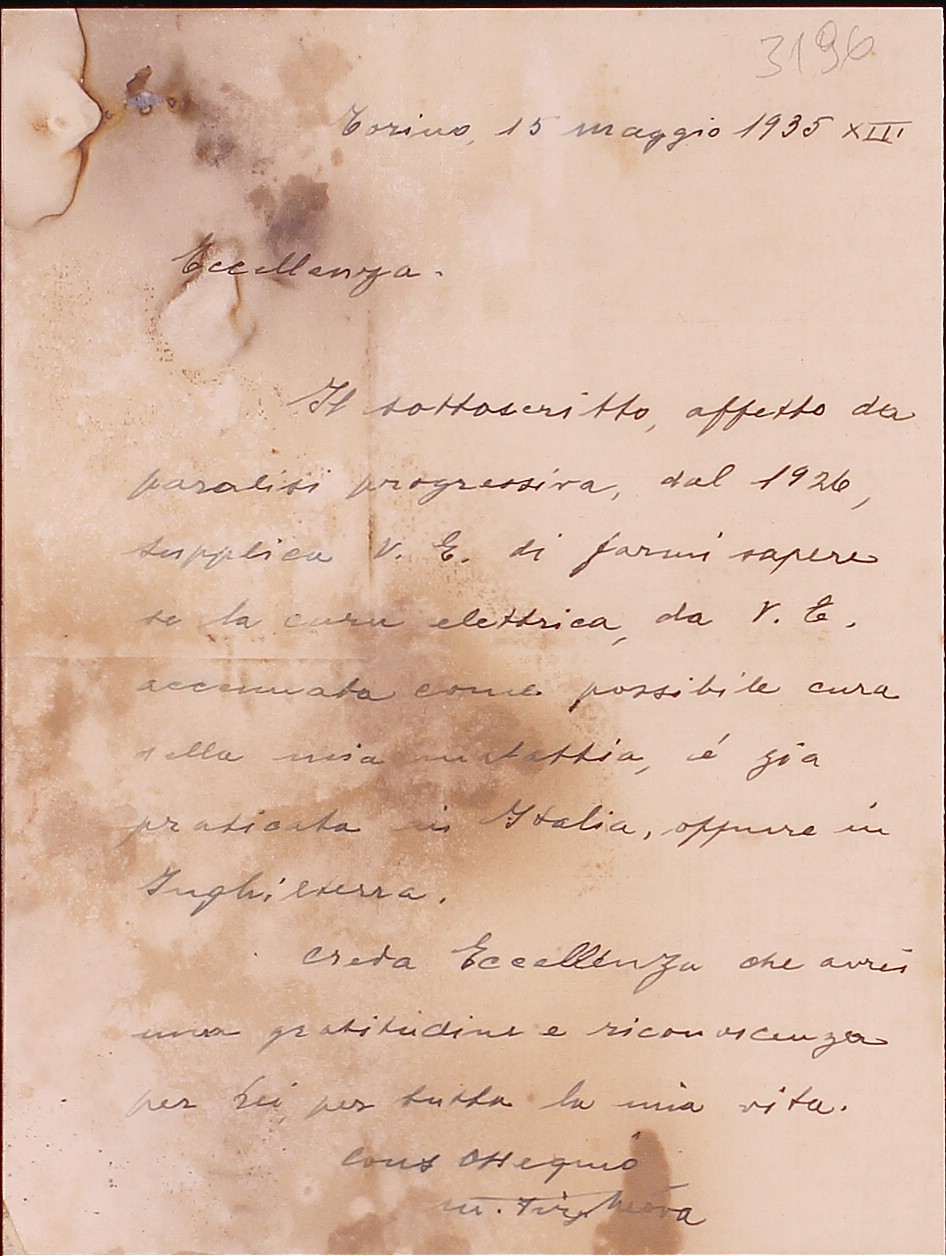 3196
Torino, 15 maggio 1935 XIII
Eccellenza.
Il sottoscritto, affetto da
paralisi progressiva, dal 1926,
supplica V. E. di farmi sapere
se la cura elettrica, da V. E.
accennata come possibile cura
della mia malattia, é gia
praticata in Italia, oppure in
Inghilterra.
Creda Eccellenza che avrei
una gratitudine e riconoscenza
per Lei, per tutta la mia vita.
Cons Ossequio
M.